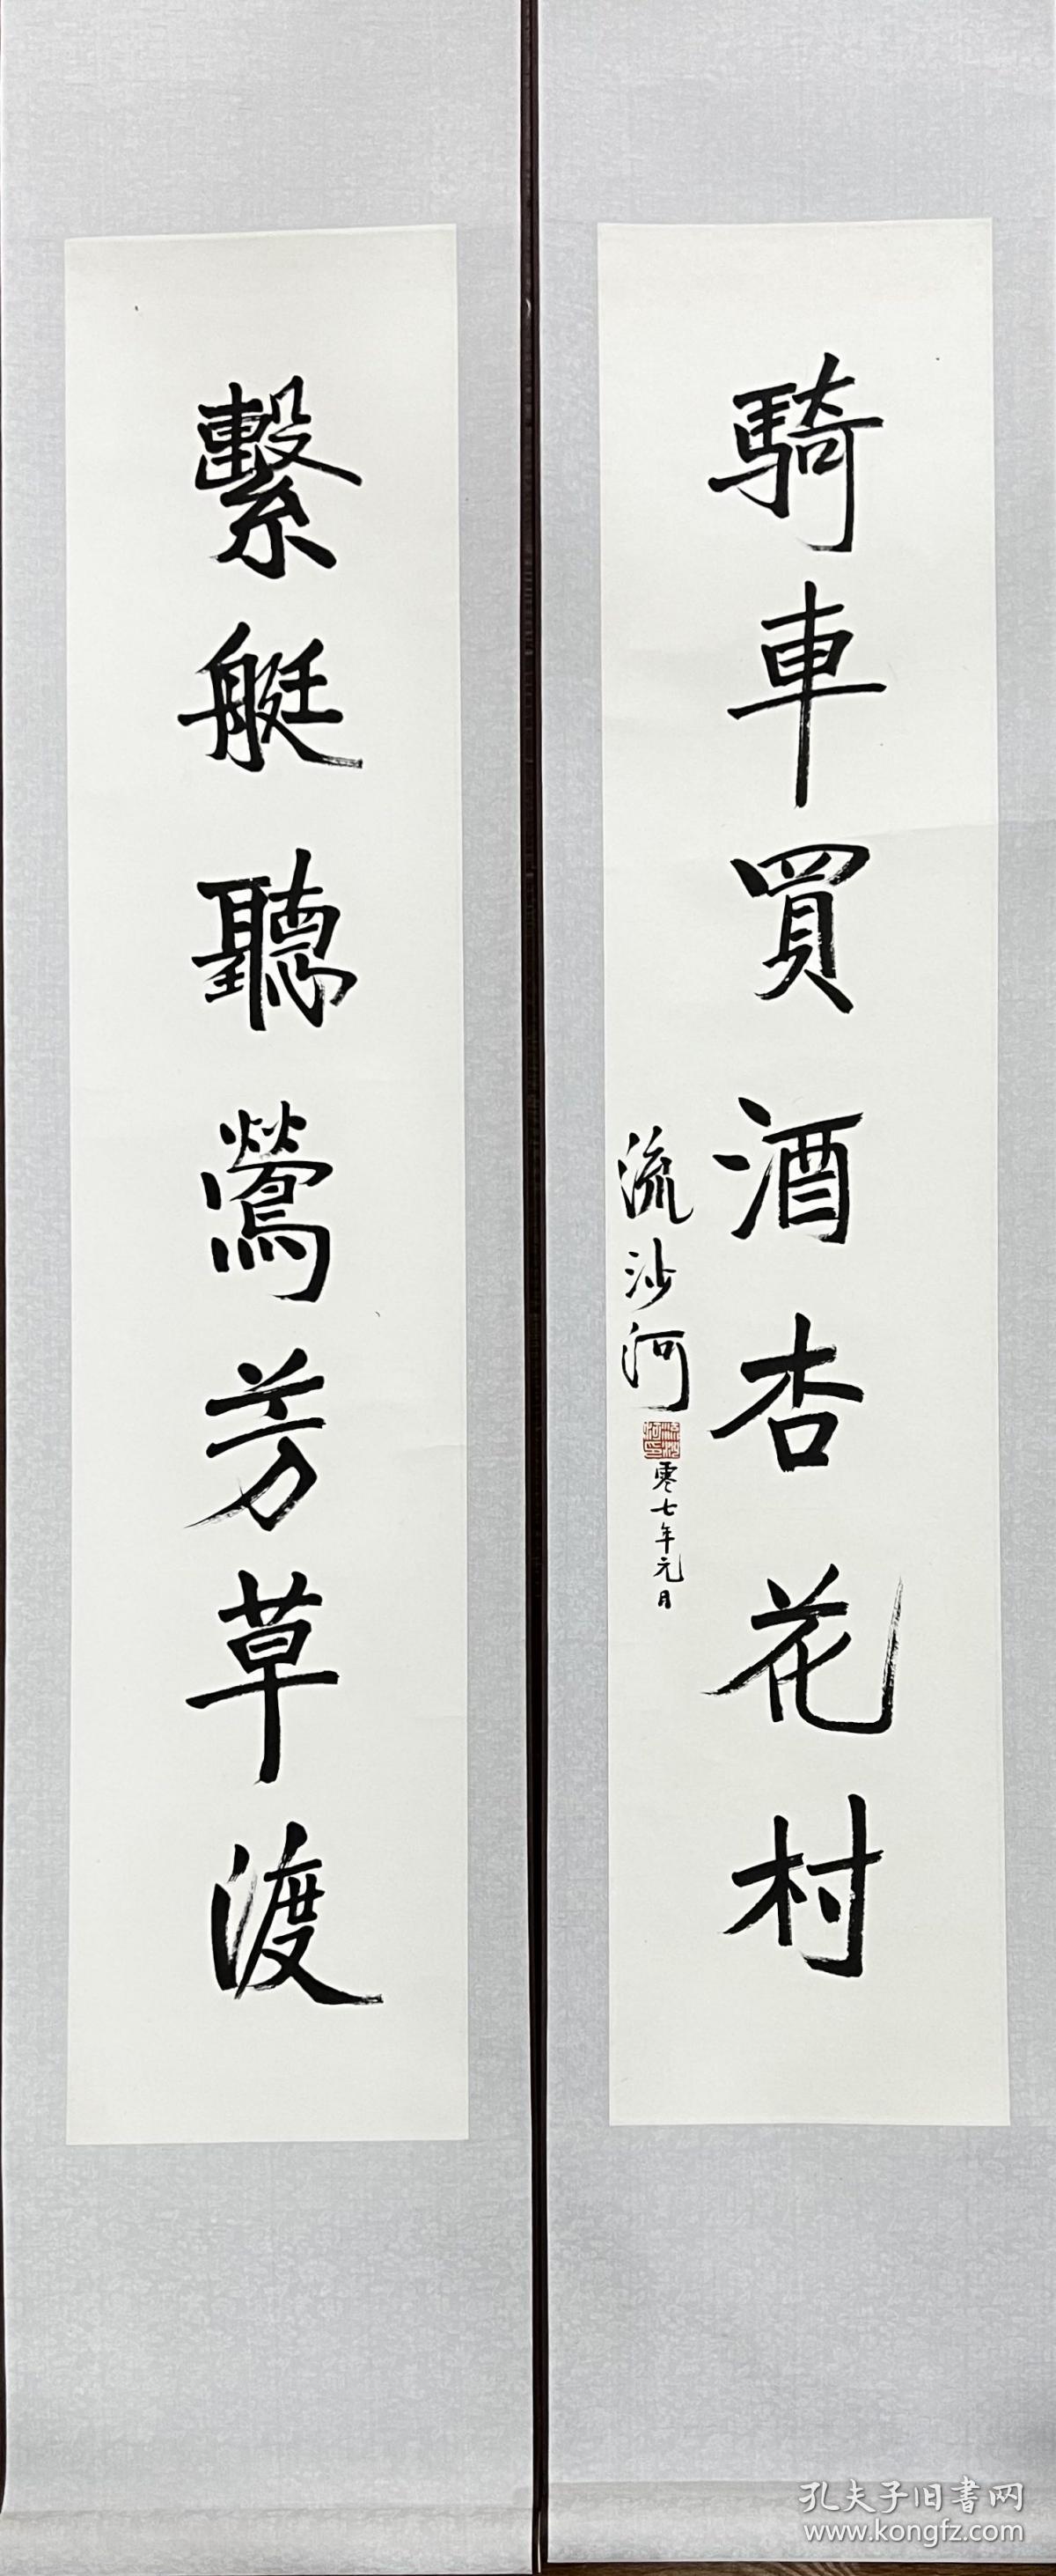 騎車買酒杏花村
流沙河
流沙河印
零七年元月
繫艇聽鶯芳草渡
孔夫子旧书网
www.kongfz.com